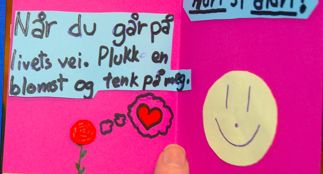 Når du går på
livets vei. Plukk en
blomst og tenk på meg.